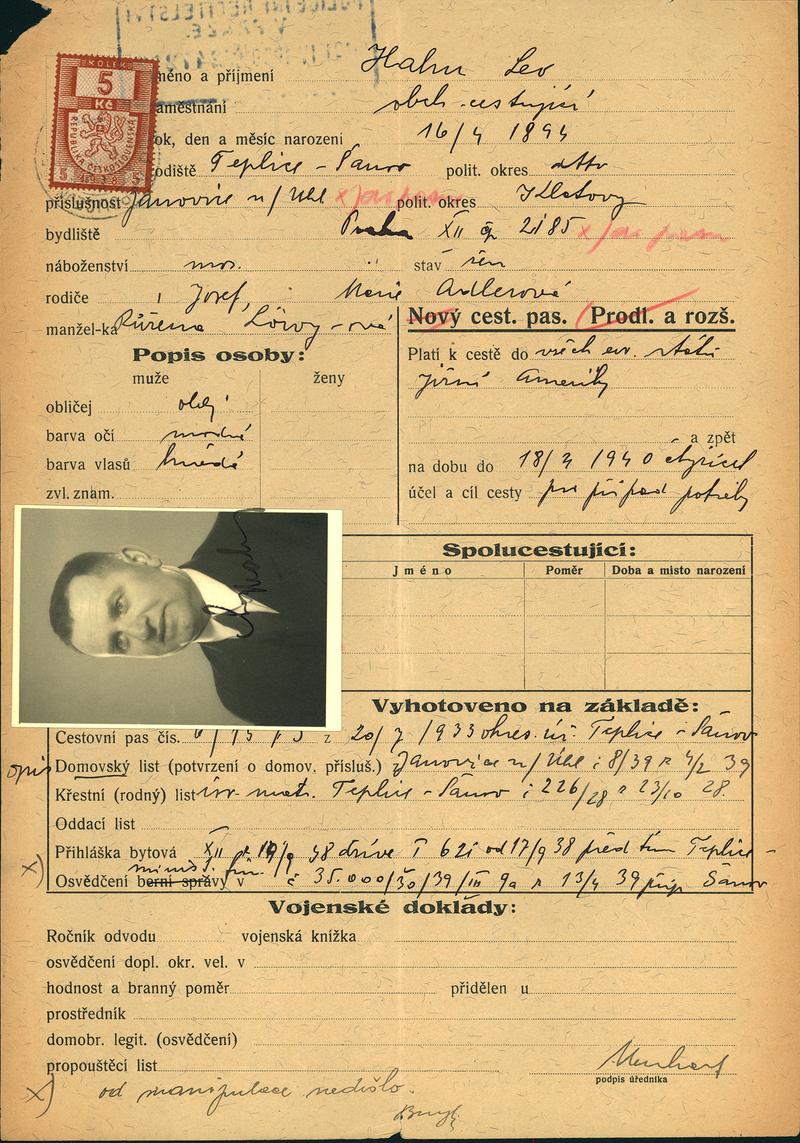 KOLEK
5
Kč
REPUBLIKA ČESKOSLOVENSKÁ
5 5
méno a příjmení Hahn Leo
aměstnání obch. cestující
ok, den a měsíc narození 16/4 1894
odiště Teplice - Šanov polit. okres dtto
příslušnost Janovice n/Uhl polit. okres Klatovy
bydliště Praha XII čp 2185
náboženství mos. stav žen
rodiče Josef, Marie Adlerová
manžel-ka Růžena Löwy-ová
Nový cest. pas. Prodl. a rozš.
Popis osoby:
muže ženy
Platí k cestě do všech evr. států
Jižní Ameriky
obličej
barva očí modré
barva vlasů hnědé
zvl. znam.
a zpět
na dobu do 18/4 1940
účel a cíl cesty pro případ potřeby
Spolucestující:
Jméno Poměr Doba a místo narození
Vyhotoveno na základě:
Cestovní pas čís. z 20/7 1933 okres. úř. Teplice - Šanov
opis
Domovský list (potvrzení o domov. přísluš.) Janovice n/Uhl č 8/39 z 4/2 39
Křestní (rodný) list isr. mat. Teplice - Šanov č 226/28 z 23/10 28.
Oddací list
Přihláška bytová XII z 19/9 38 dříve I 621 od 17/9 38 před tím Teplice -
x) Osvědčení berní správy v minist. fin. č 35.000/30/39/III 9a z 13/4 39 Šanov
Vojenské doklady:
Ročník odvodu vojenská knížka
osvědčení dopl. okr. vel. v
hodnost a branný poměr přidělen u
prostředník
domobr. legit. (osvědčení)
propouštěcí list
podpis úředníka
x) od manipulace nedošlo.